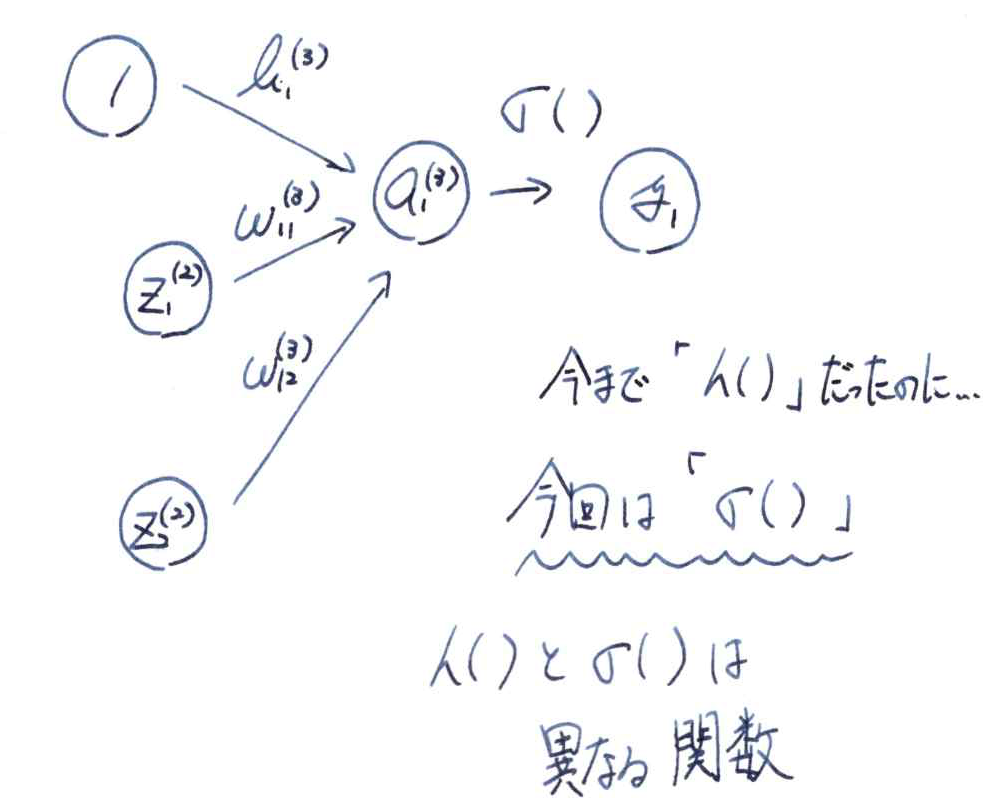 1
b₁⁽³⁾
σ()
a₁⁽³⁾
y₁
w₁₁⁽³⁾
z₁⁽²⁾
w₁₂⁽³⁾
z₂⁽²⁾
今まで「h()」だったのに…
今回は「σ()」
h()とσ()は
異なる関数